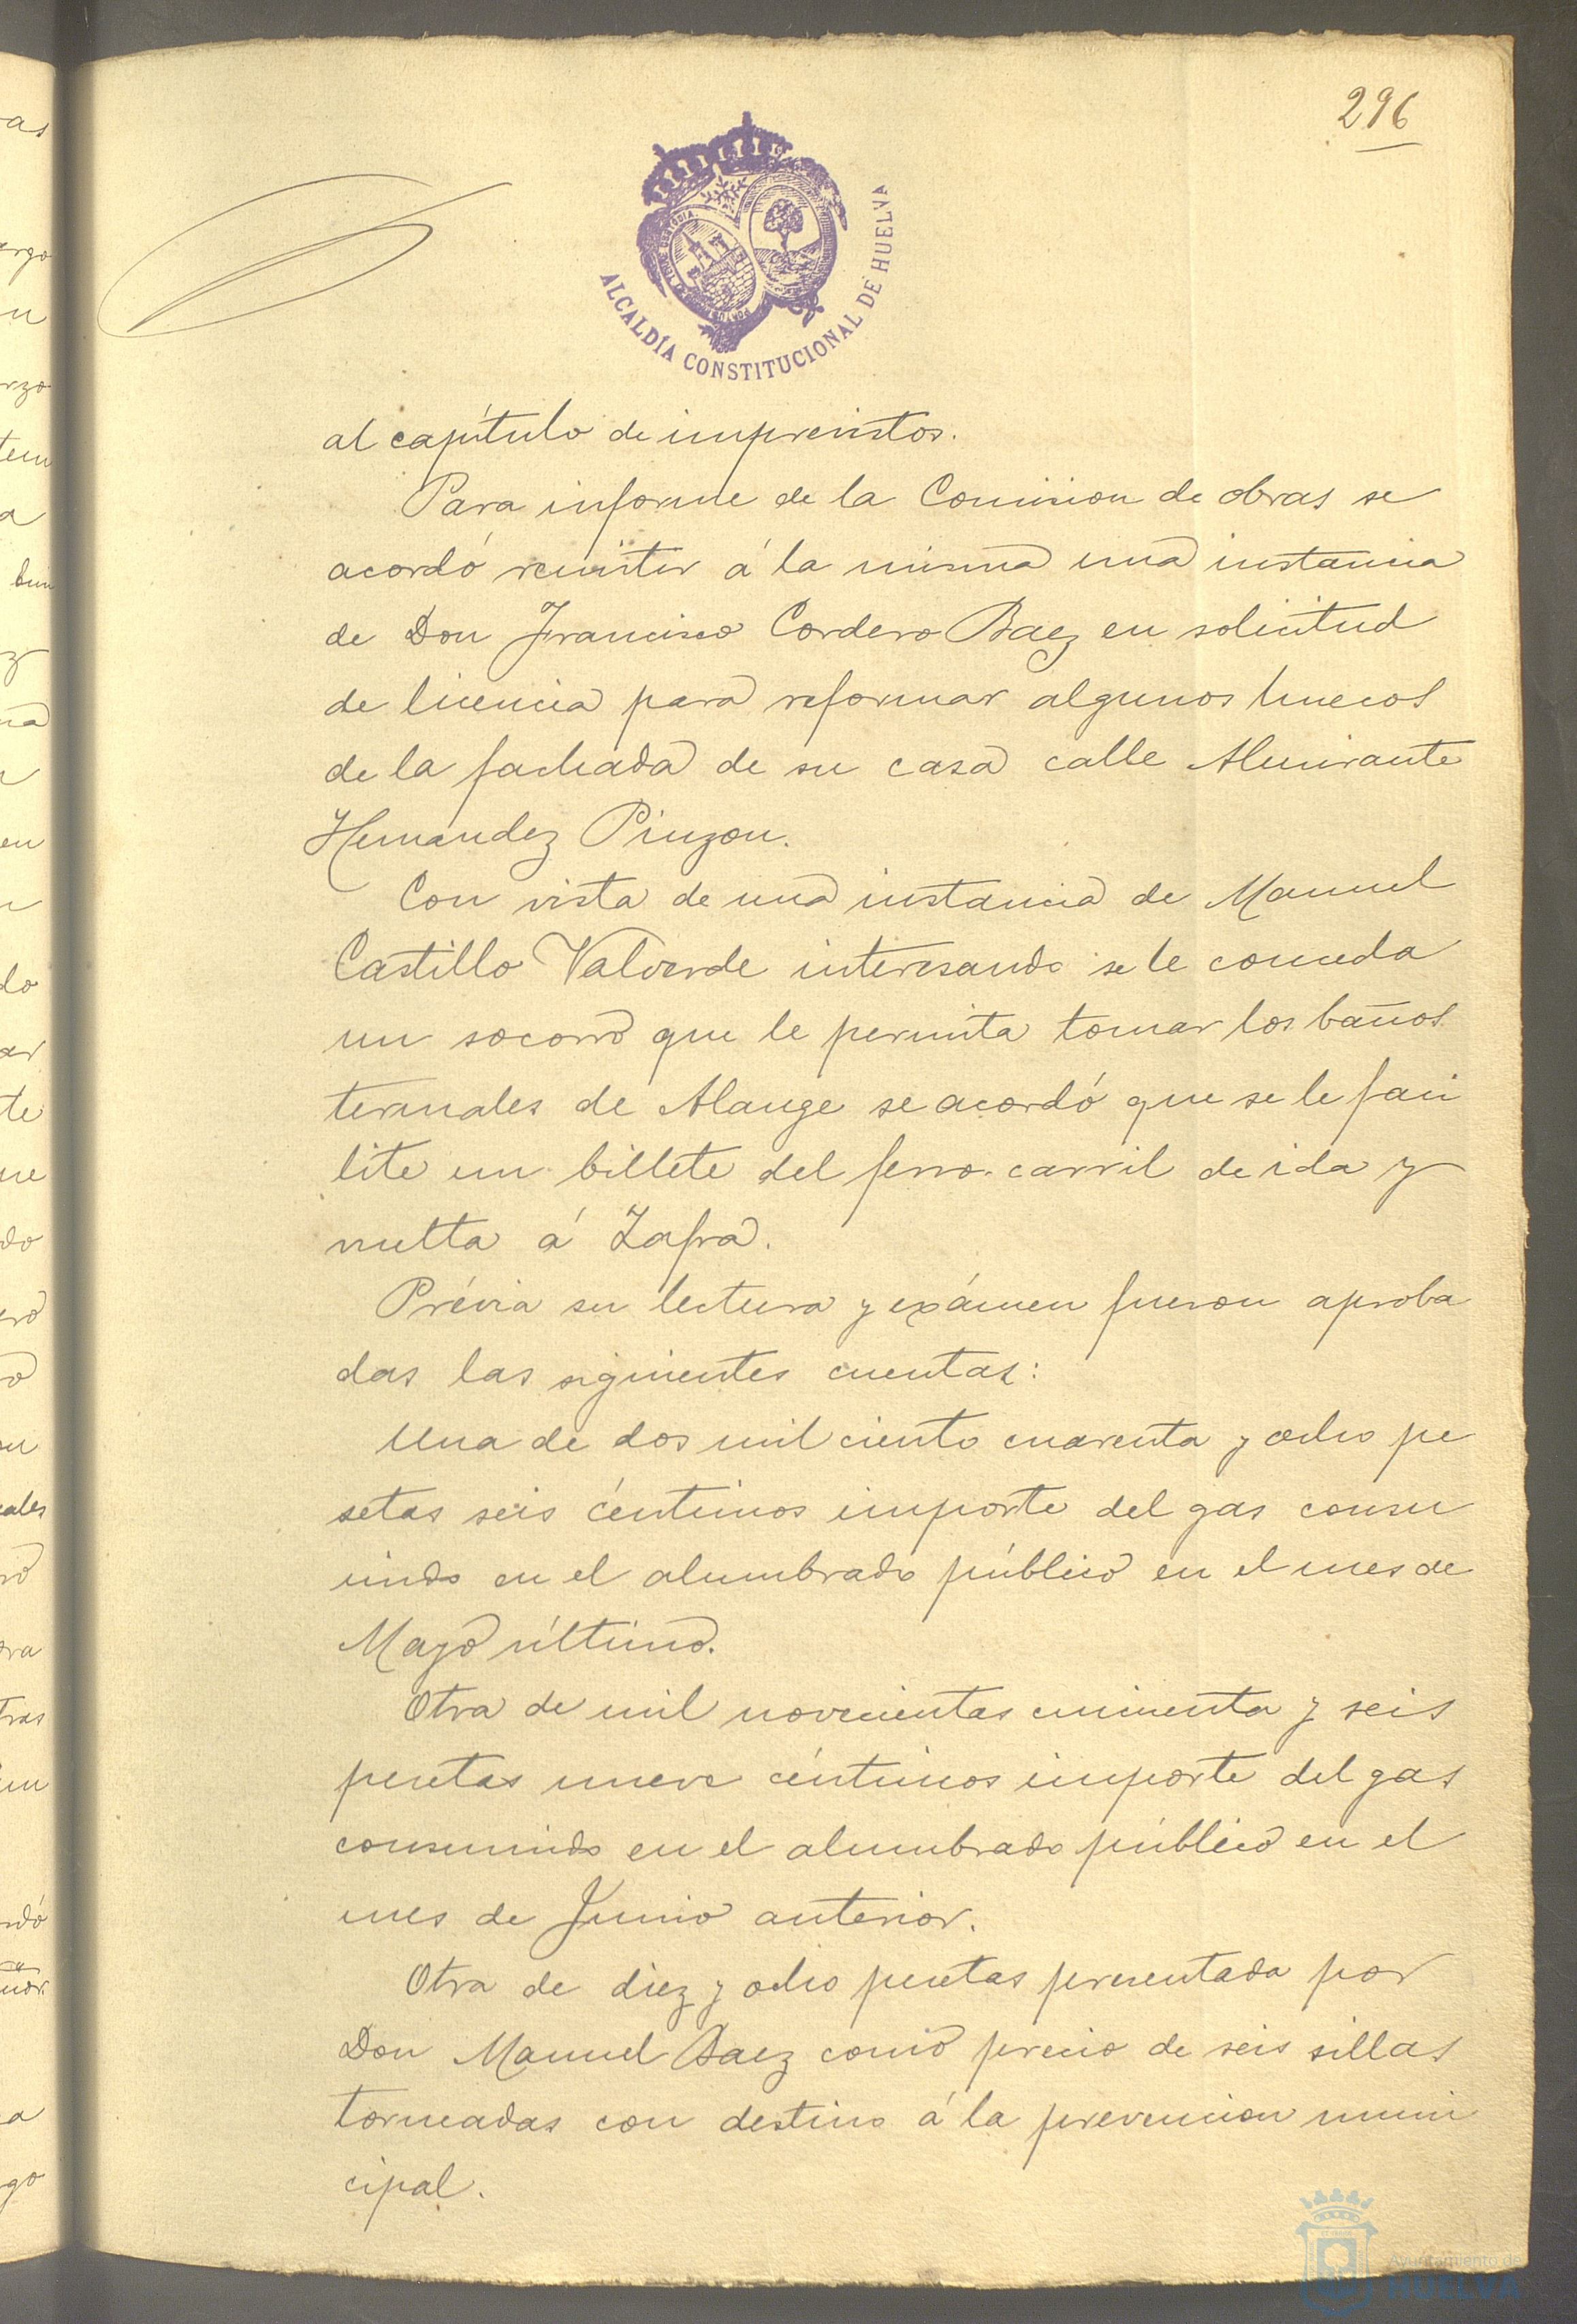 296
ALCALDÍA CONSTITUCIONAL DE HUELVA
al capítulo de imprevistos.
Para informe de la Comision de obras se
acordó remitir á la misma una instancia
de Don Francisco Cordero Baez en solicitud
de licencia para reformar algunos huecos
de la fachada de su casa calle Almirante
Hernandez Pinzon.
Con vista de una instancia de Manuel
Castillo Valverde interesando se le conceda
un socorro que le permita tomar los baños
termales de Alange se acordó que se le faci
lite un billete del ferro-carril de ida y
vuelta á Zafra.
Prévia su lectura y exámen fueron aproba
das las siguientes cuentas:
Una de dos mil ciento cuarenta y ocho pe
setas seis céntimos importe del gas consu
mido en el alumbrado público en el mes de
Mayo último.
Otra de mil novecientas cincuenta y seis
pesetas nueve céntimos importe del gas
consumido en el alumbrado público en el
mes de Junio anterior.
Otra de diez y ocho pesetas presentada por
Don Manuel Baez como precio de seis sillas
torneadas con destino á la prevencion muni
cipal.
Ayuntamiento de
HUELVA